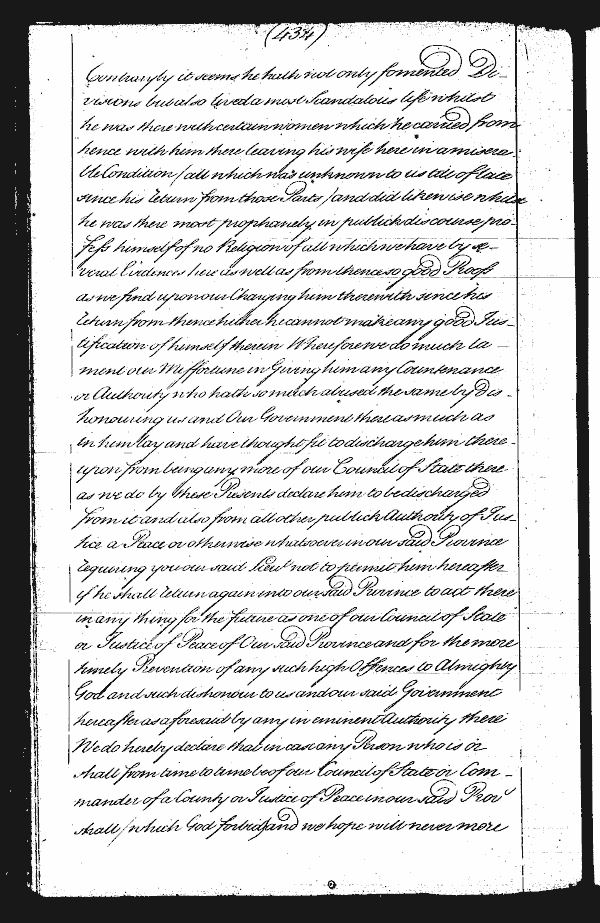 (434)
Contraryly it seems he hath not only fomented Di-
visions but also lived a most Scandalous life whilst
he was there with certain women which he carried from
hence with him there leaving his wife here in a misera-
ble Condition /all which was unknown to us till of late
since his return from those Parts /and did likewise whilst
he was there most prophanely in publick discourse pro-
fess himself of no Religion of all which we have by se-
veral Evidences here as well as from thence so good Proofs
as we find upon our Charging him therewith since his
return from thence hither he cannot make any good Jus-
tification of himself therein Wherefore we do much la-
ment our Misfortune in Giving him any Countenance
or Authority who hath so much abused the same by Dis-
honouring us and Our Government there as much as
in him lay and have thought fit to discharge him there-
upon from being any more of our Council of State there
as we do by these Presents declare him to be discharged
from it and also from all other publick Authority of Jus-
tice a Peace or otherwise whatsoever in our said Province
requiring you our said Lieut not to permit him hereafter
if he shall return again into our said Province to act there
in any thing for the future as one of our Council of State
or Justice of Peace of Our said Province and for the more
timely Prevention of any such high Offences to Almighty
God and such dishonour to us and our said Government
hereafter as aforesaid by any in eminent Authority there
We do hereby declare that in case any Person who is or
shall from time to time be of our Council of State or Com-
mander of a County or Justice of Peace in our said Prov
shall /which God forbid/ and we hope will never more